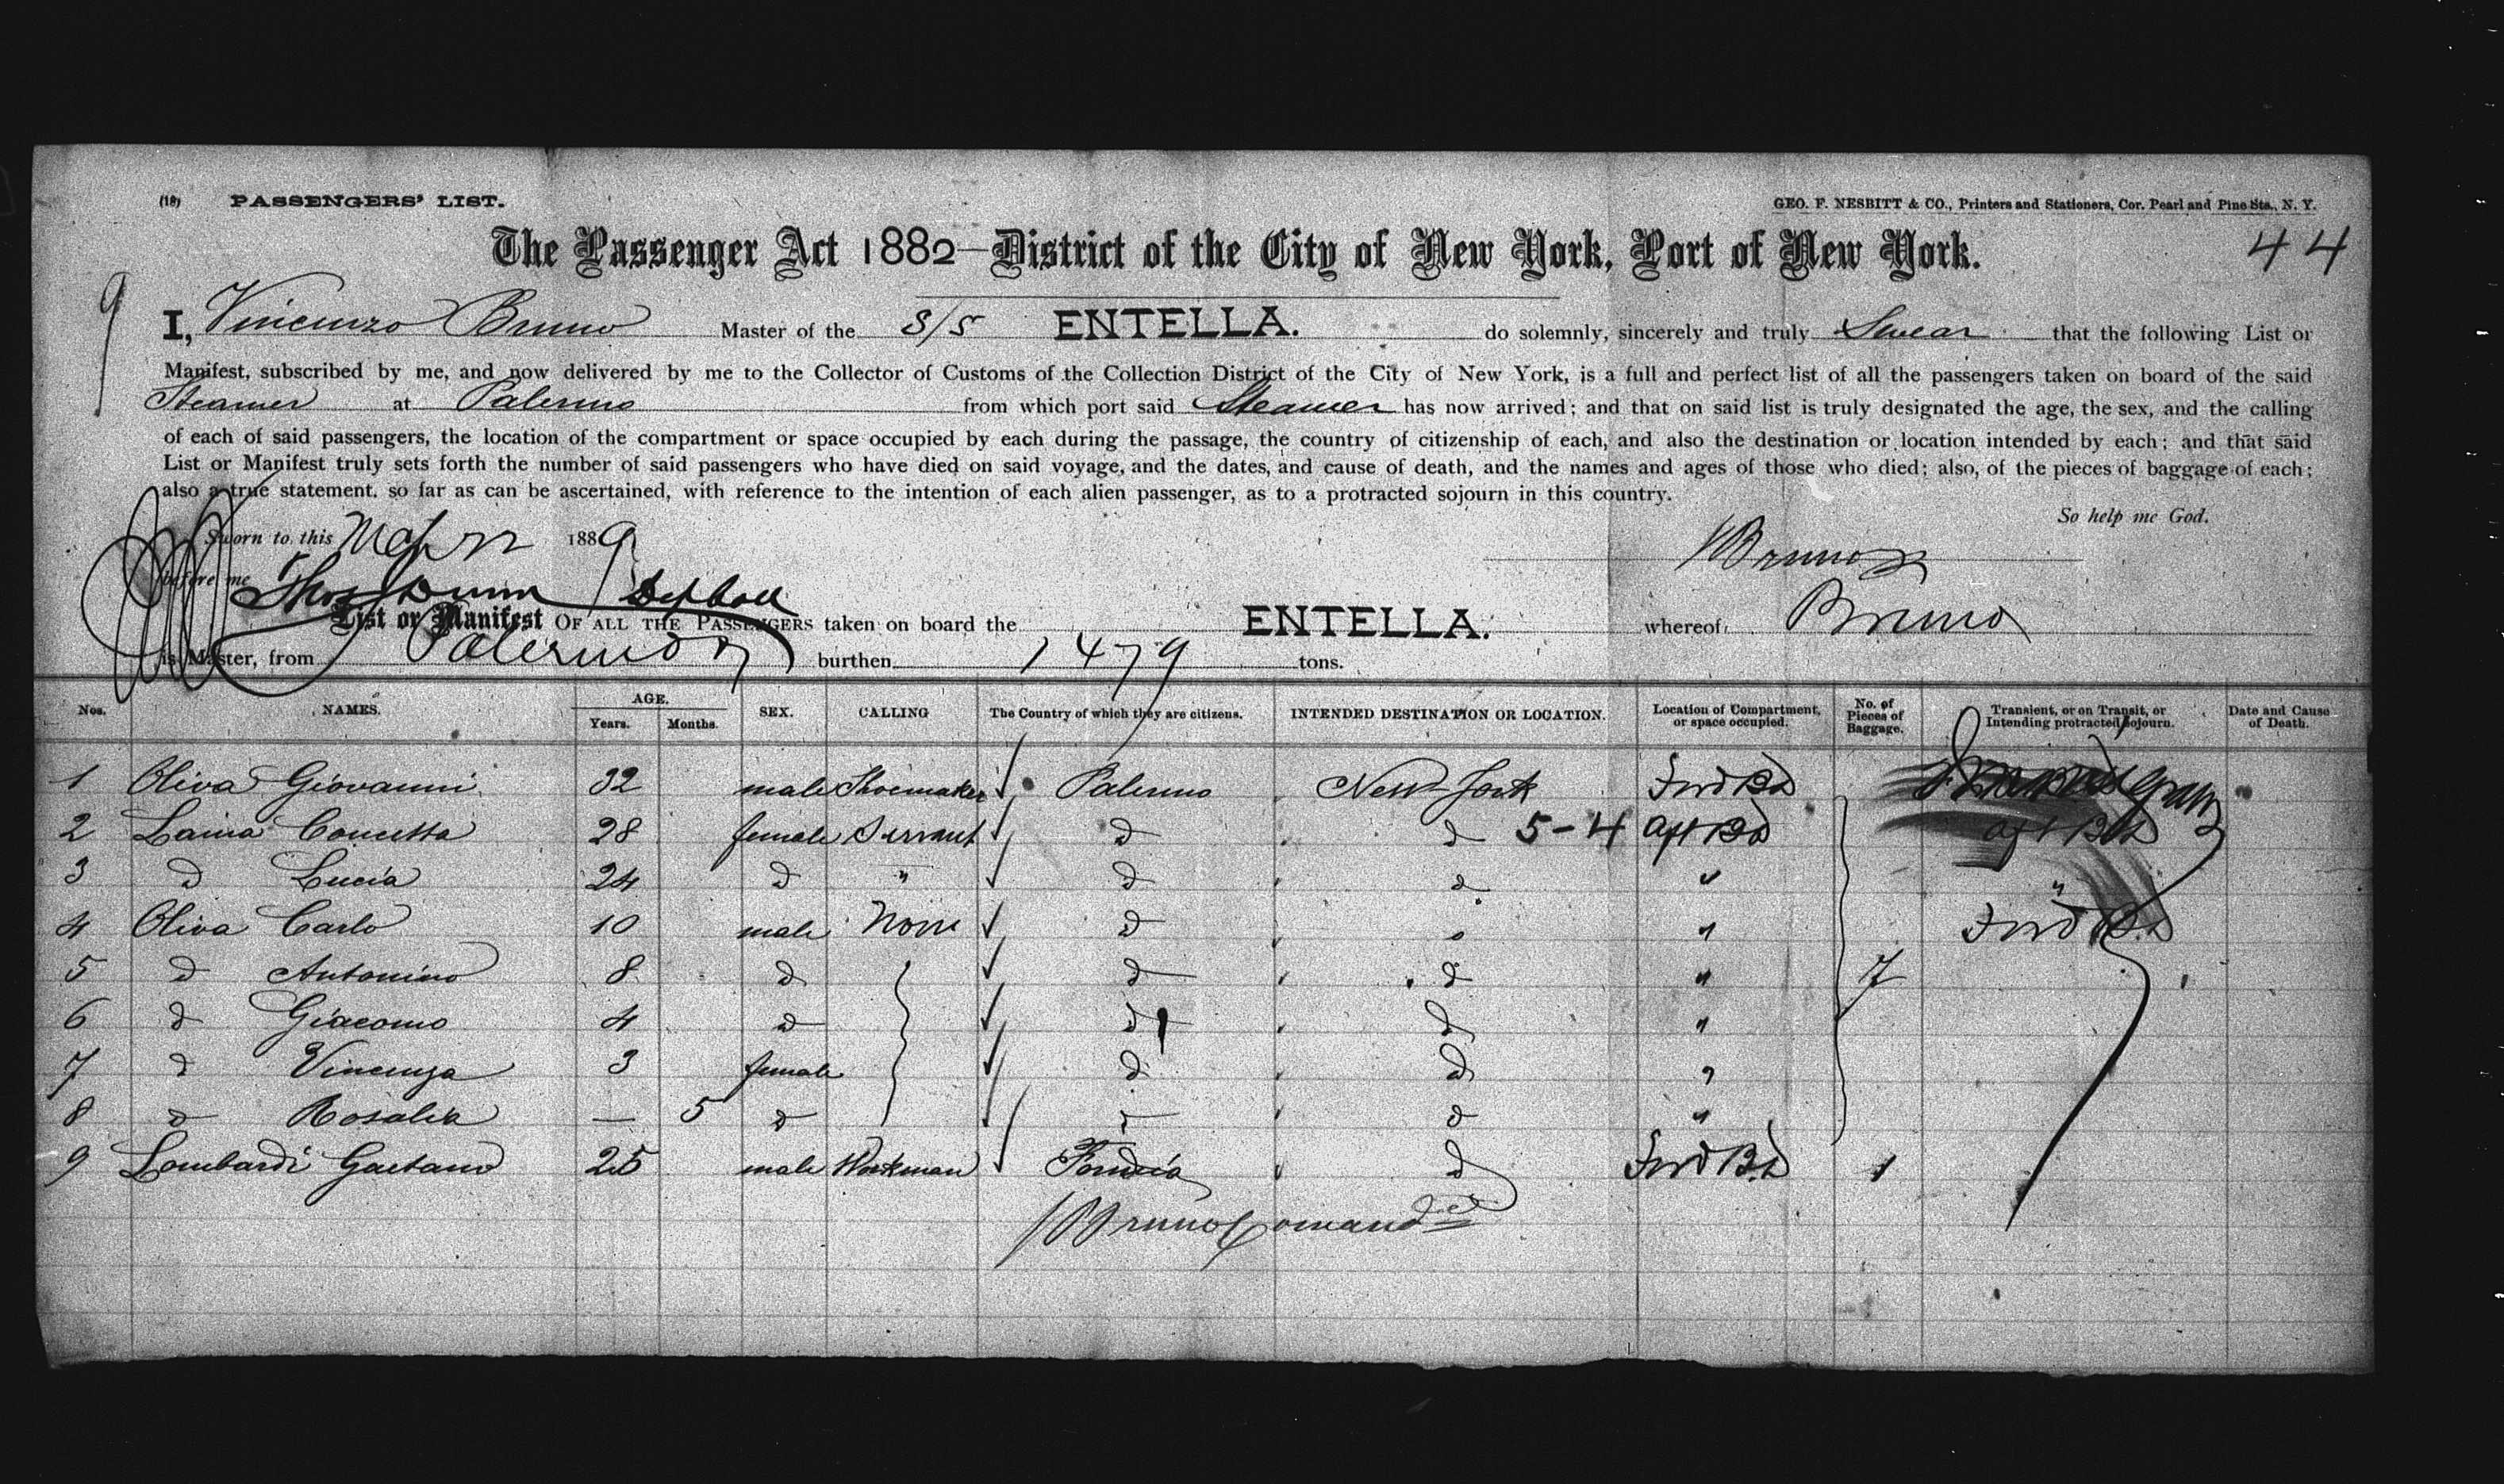 (18) PASSENGERS' LIST. GEO. F. NESBITT & CO., Printers and Stationers, Cor. Pearl and Pine Sts., N. Y.
The Passenger Act 1882—District of the City of New York, Port of New York. 44
9
I, Vincenzo Bruno Master of the S/S ENTELLA. do solemnly, sincerely and truly Swear that the following List or
Manifest, subscribed by me, and now delivered by me to the Collector of Customs of the Collection District of the City of New York, is a full and perfect list of all the passengers taken on board of the said
Steamer at Palermo from which port said Steamer has now arrived; and that on said list is truly designated the age, the sex, and the calling
of each of said passengers, the location of the compartment or space occupied by each during the passage, the country of citizenship of each, and also the destination or location intended by each; and that said
List or Manifest truly sets forth the number of said passengers who have died on said voyage, and the dates, and cause of death, and the names and ages of those who died; also, of the pieces of baggage of each;
also a true statement, so far as can be ascertained, with reference to the intention of each alien passenger, as to a protracted sojourn in this country.
So help me God.
Sworn to this 1889 VBruno
before me Thos Dunn
List or Manifest OF ALL THE PASSENGERS taken on board the ENTELLA. whereof Bruno
is Master, from Palermo burthen 1479 tons.
Nos. NAMES. AGE. Years. Months. SEX. CALLING The Country of which they are citizens. INTENDED DESTINATION OR LOCATION. Location of Compartment, or space occupied. No. of Pieces of Baggage. Transient, or on Transit, or Intending protracted Sojourn. Date and Cause of Death.
1 Oliva Giovanni 32 male Shoemaker Palermo New York Ford Bd
2 Laina Concetta 28 female Servant d d 5-4 aft Bd aft Bd
3 d Lucia 24 d " d d " "
4 Oliva Carlo 10 male None d " Ford Bd
5 d Antonino 8 d d d " 7
6 d Giacomo 4 d d d "
7 d Vincenza 3 female d d "
8 d Rosalia — 5 d d d "
9 Lombardi Gaetano 25 male Workman d Ford Bd 1
VBruno Comand